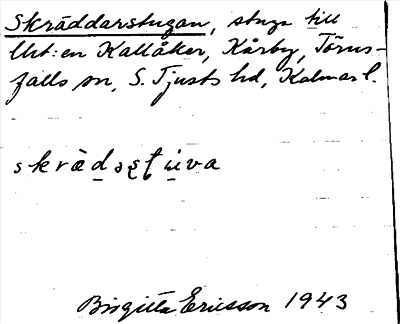 Skräddarstugan, stuga till
Urt:en Kallåker, Kårby, Törns-
falls sn, S. Tjusts hd, Kalmar l.
skrädəʂtuva
Birgitta Ericsson 1943